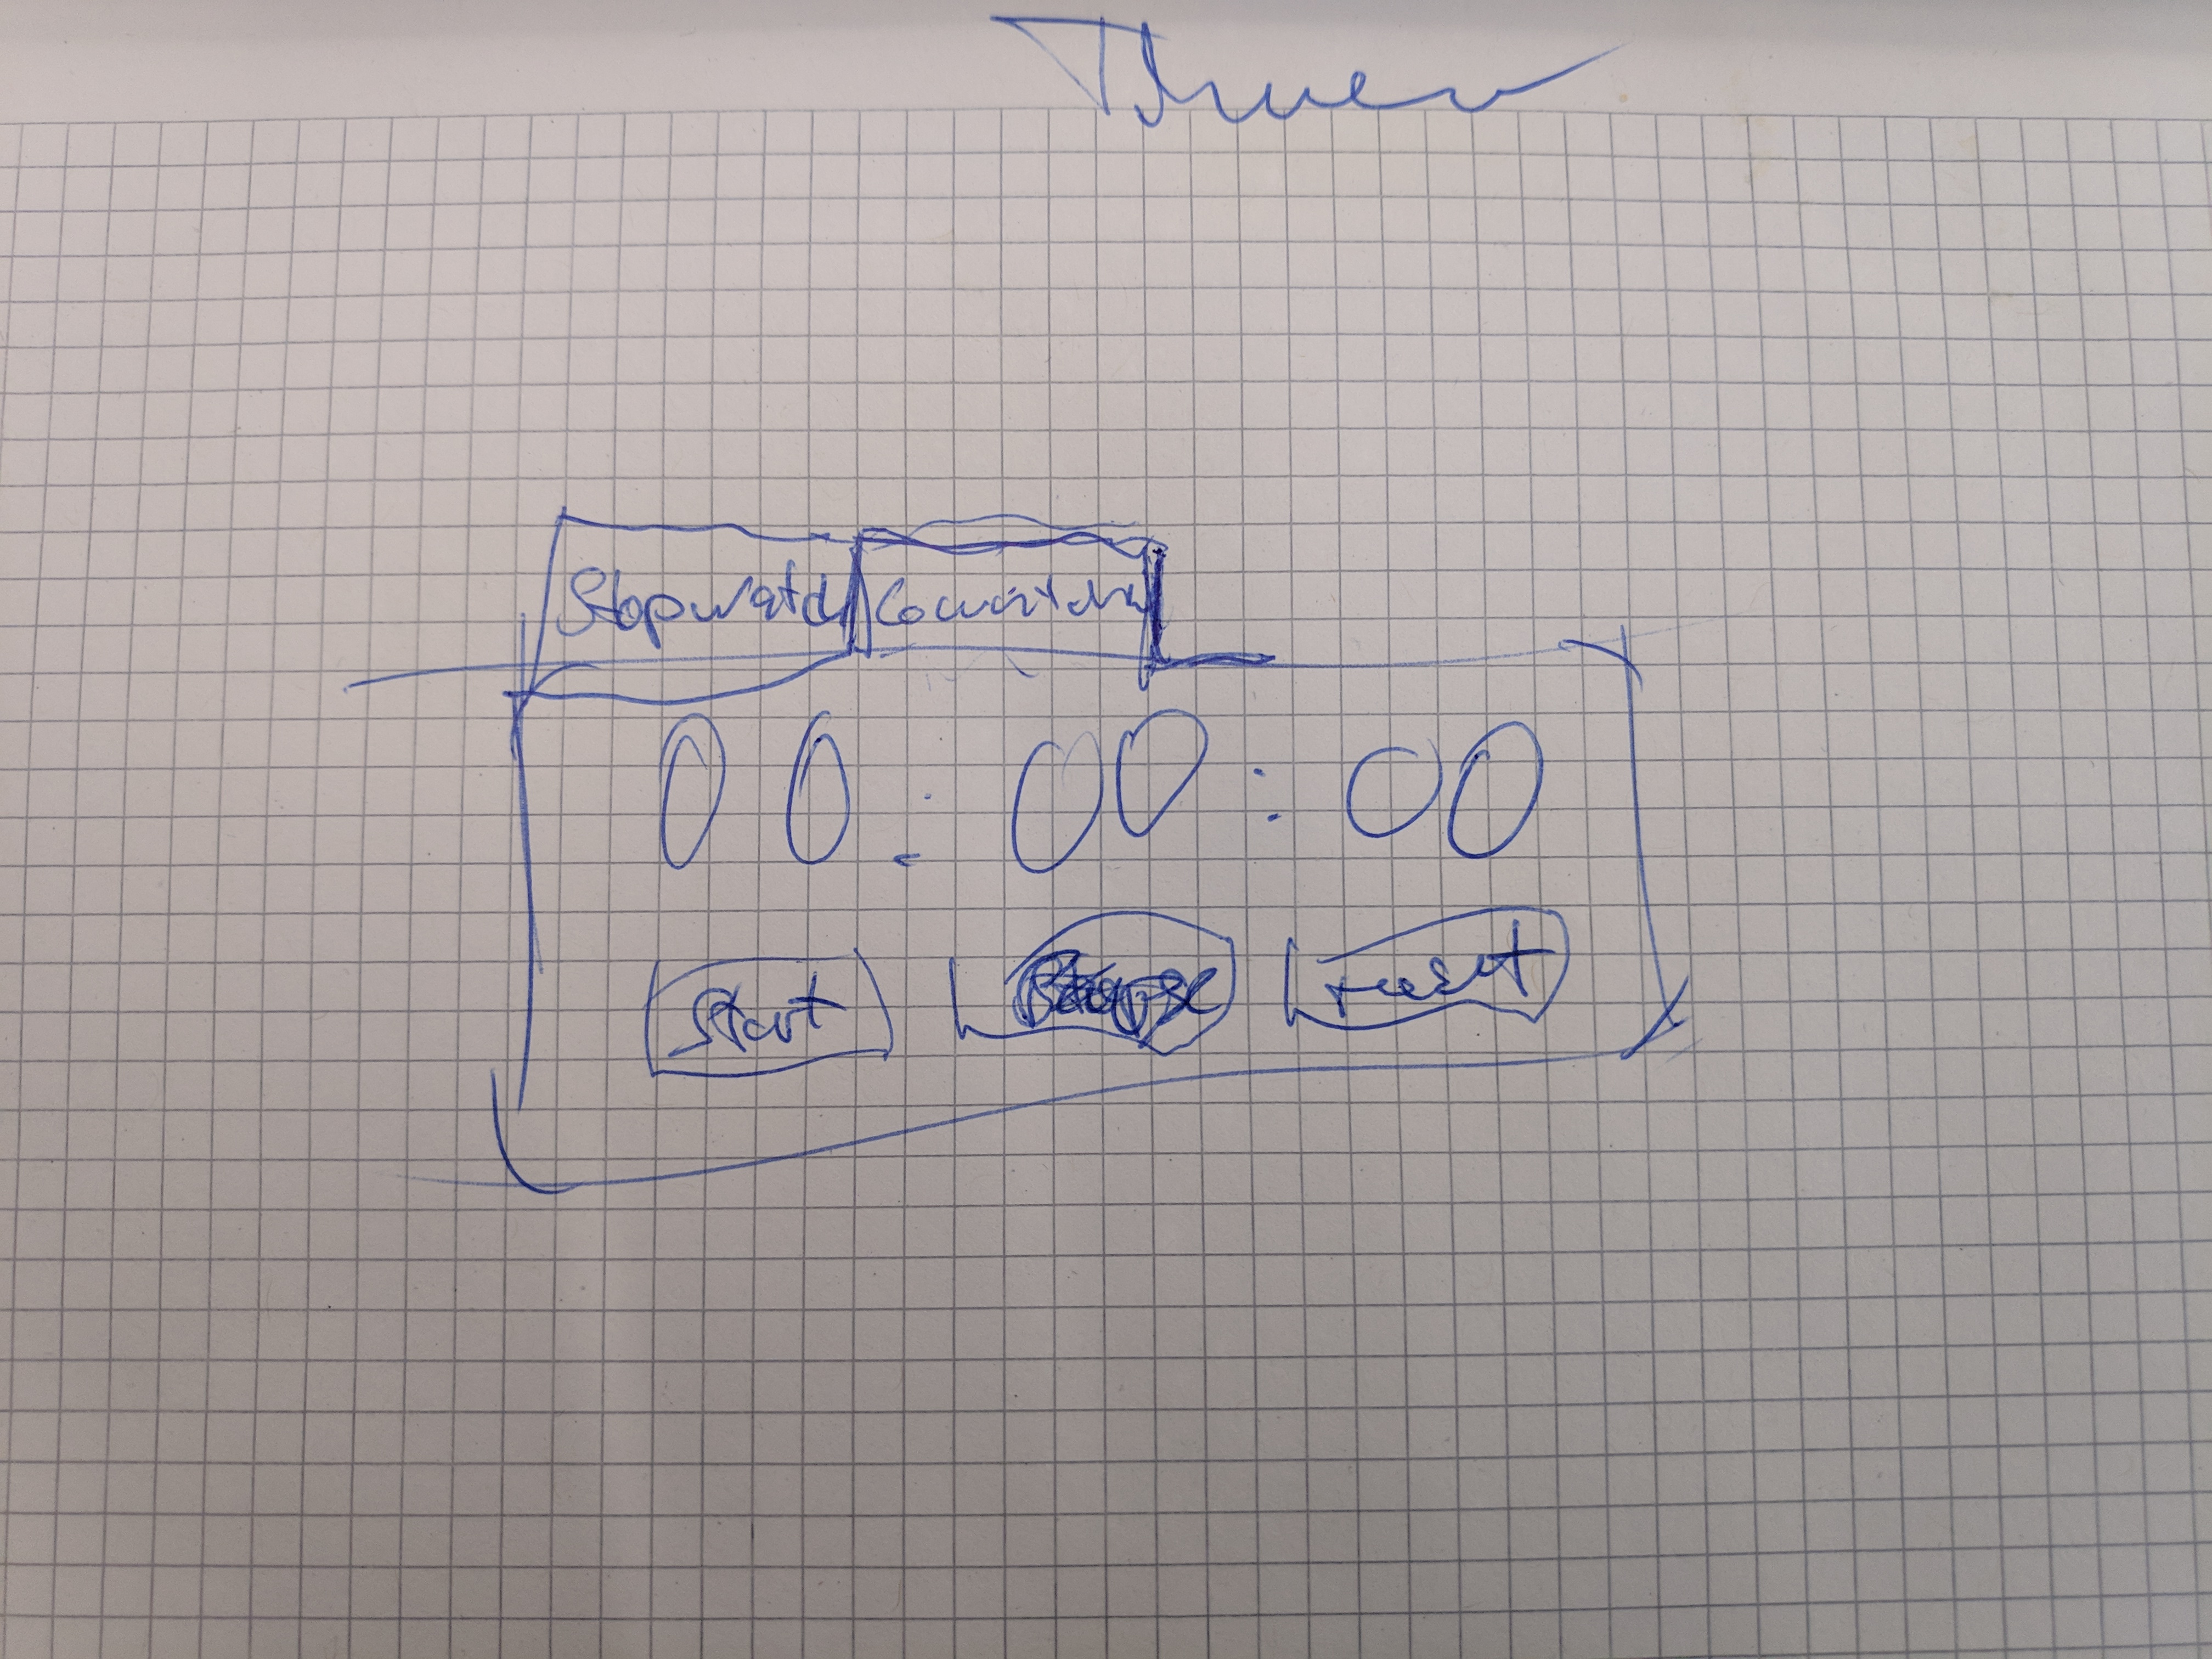 Timer
Stopwatch Countdn
00:00:00
Start Pause reset